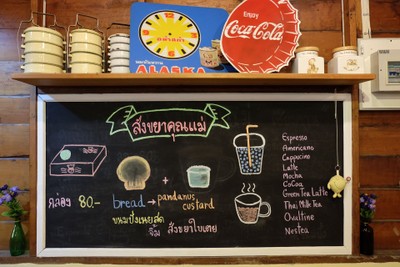 Enjoy
Coca-Cola
ALASKA
สังขยาคุณแม่
กล่อง 80.-
bread → pandanus
+ custard
ขนมปังเนยสด
จิ้ม สังขยาใบเตย
Espresso
Americano
Cappucino
Latte
Mocha
CoCoa
Green Tea Latte
Thai Milk Tea
Ovaltine
Nestea